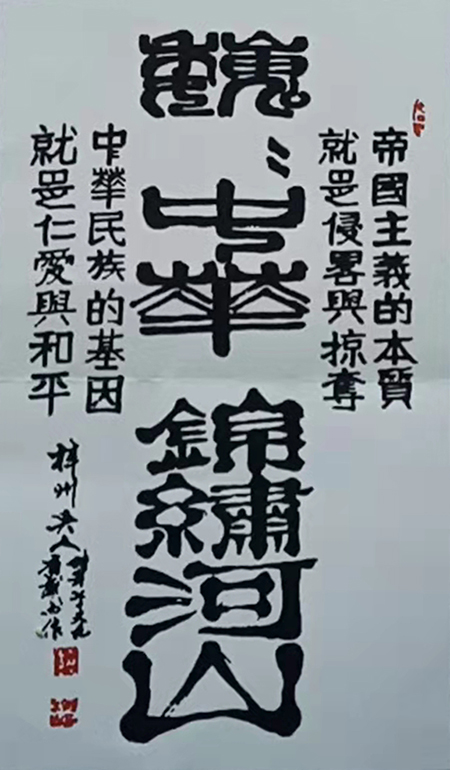 帝國主義的本質
就是侵畧與掠奪
巍〻中華
錦繡河山
中華民族的基因
就是仁愛與和平
梓州